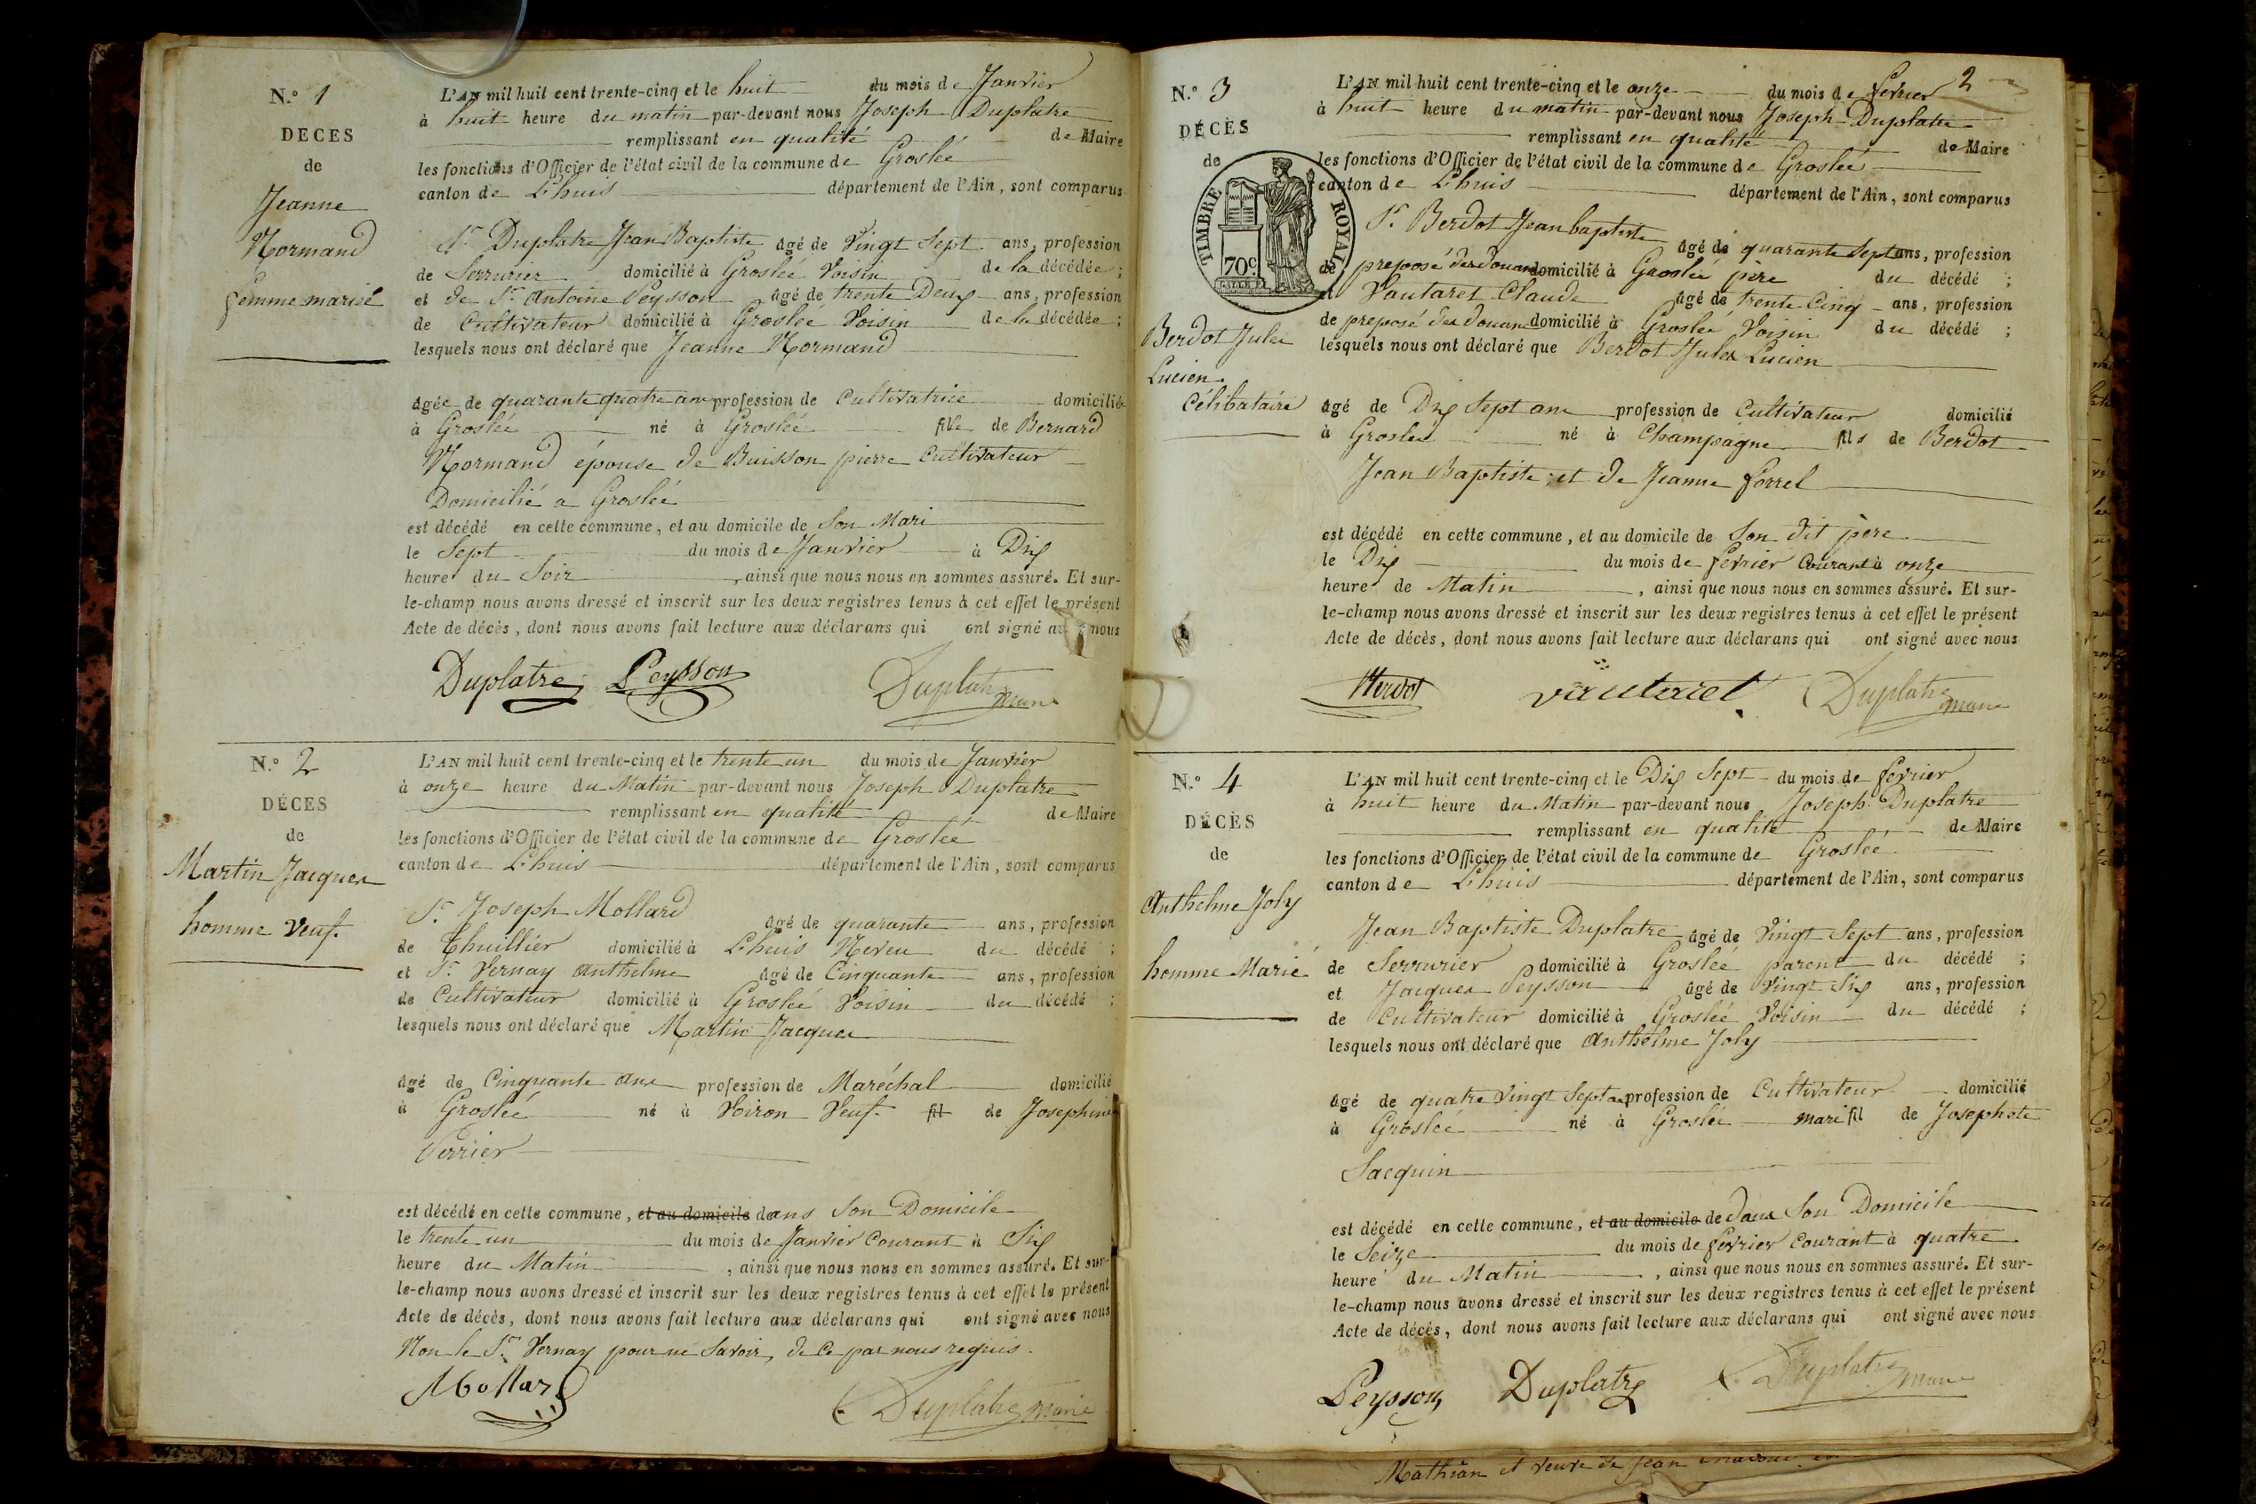 N.º 1
DECES
de
Jeanne
Normand
femme mariée
L'AN mil huit cent trente-cinq et le huit du mois de Janvier
à huit heure du matin par-devant nous Joseph Duplatre
remplissant en qualité de Maire
les fonctions d'Officier de l'état civil de la commune de Groslée
canton de Lhuis département de l'Ain, sont comparus
Sr. Duplatre Jean Baptiste âgé de Vingt Sept ans, profession
de Serrurier domicilié à Groslée Voisin de la décédée ;
et de Sr. Antoine Peysson âgé de trente Deux ans, profession
de Cultivateur domicilié à Groslée Voisin de la décédée ;
lesquels nous ont déclaré que Jeanne Normand
agée de quarante quatre ans profession de Cultivatrice domicilié
à Groslée né à Groslée fille de Bernard
Normand épouse de Buisson pierre Cultivateur
Domicilié a Groslée
est décédé en cette commune, et au domicile de Son Mari
le Sept du mois de Janvier à Dix
heure du Soir, ainsi que nous nous en sommes assuré. Et sur-
le-champ nous avons dressé et inscrit sur les deux registres tenus à cet effet le présent
Acte de décès, dont nous avons fait lecture aux déclarans qui ont signé avec nous
Duplatre Peysson Duplatre maire
N.º 2
DÉCES
de
Martin Jacques
homme Veuf.
L'AN mil huit cent trente-cinq et le trente un du mois de Janvier
à onze heure du Matin par-devant nous Joseph Duplatre
remplissant en qualité de Maire
les fonctions d'Officier de l'état civil de la commune de Groslée
canton de Lhuis département de l'Ain, sont comparus
Sr. Joseph Mollard âgé de quarante ans, profession
de Thuillier domicilié à Lhuis Neveu du décédé ;
et Sr. Vernay Anthelme âgé de Cinquante ans, profession
de Cultivateur domicilié à Groslée Voisin du décédé ;
lesquels nous ont déclaré que Martin Jacques
agé de Cinquante ans profession de Maréchal domicilié
à Groslée né à Voiron Veuf. fil de Josephine
Perrier
est décédé en cette commune, et au domicile de dans Son Domicile
le trente un du mois de Janvier Courant à Six
heure du Matin, ainsi que nous nous en sommes assuré. Et sur-
le-champ nous avons dressé et inscrit sur les deux registres tenus à cet effet le présent
Acte de décès, dont nous avons fait lecture aux déclarans qui ont signé avec nous
Non le Sr. Vernay pour ne Savoir, de Ce par nous requis.
Mollard Duplatre maire
2
N.º 3
DÉCÈS
de
TIMBRE ROYAL
70c
Berdot Jules
Lucien.
Célibataire
L'AN mil huit cent trente-cinq et le onze du mois de fevrier
à huit heure du matin par-devant nous Joseph Duplatre
remplissant en qualité de Maire
les fonctions d'Officier de l'état civil de la commune de Groslée
canton de Lhuis département de l'Ain, sont comparus
Sr. Berdot Jean baptiste âgé de quarante Sept ans, profession
de preposé des douanes domicilié à Groslée père du décédé ;
et Vautaret Claude âgé de trente Cinq ans, profession
de preposé des douanes domicilié à Groslée Voisin du décédé ;
lesquels nous ont déclaré que Berdot Jules Lucien
âgé de Dix Sept ans profession de Cultivateur domicilié
à Groslée né à Champagne fils de Berdot
Jean Baptiste et de Jeanne forrel
est décédé en cette commune, et au domicile de Son dit père
le Dix du mois de fevrier Courant à onze
heure de Matin, ainsi que nous nous en sommes assuré. Et sur-
le-champ nous avons dressé et inscrit sur les deux registres tenus à cet effet le présent
Acte de décès, dont nous avons fait lecture aux déclarans qui ont signé avec nous
Berdot Vautaret Duplatre maire
N.º 4
DÉCÈS
de
Anthelme Joly
homme Marié
L'AN mil huit cent trente-cinq et le Dix Sept du mois de fevrier
à huit heure du Matin par-devant nous Joseph Duplatre
remplissant en qualité de Maire
les fonctions d'Officier de l'état civil de la commune de Groslée
canton de Lhuis département de l'Ain, sont comparus
Jean Baptiste Duplatre âgé de Vingt Sept ans, profession
de Serrurier domicilié à Groslée parent du décédé ;
et Jacques Peysson âgé de Vingt Six ans, profession
de Cultivateur domicilié à Groslée Voisin du décédé ;
lesquels nous ont déclaré que Anthelme Joly
âgé de quatre Vingt Sept ans profession de Cultivateur domicilié
à Groslée né à Groslée mari fil de Josephote
Sacquin
est décédé en cette commune, et au domicile de dans Son Domicile
le Seize du mois de fevrier Courant à quatre
heure du Matin, ainsi que nous nous en sommes assuré. Et sur-
le-champ nous avons dressé et inscrit sur les deux registres tenus à cet effet le présent
Acte de décès, dont nous avons fait lecture aux déclarans qui ont signé avec nous
Peysson Duplatre Duplatre maire
Mathian et veuve de Jean